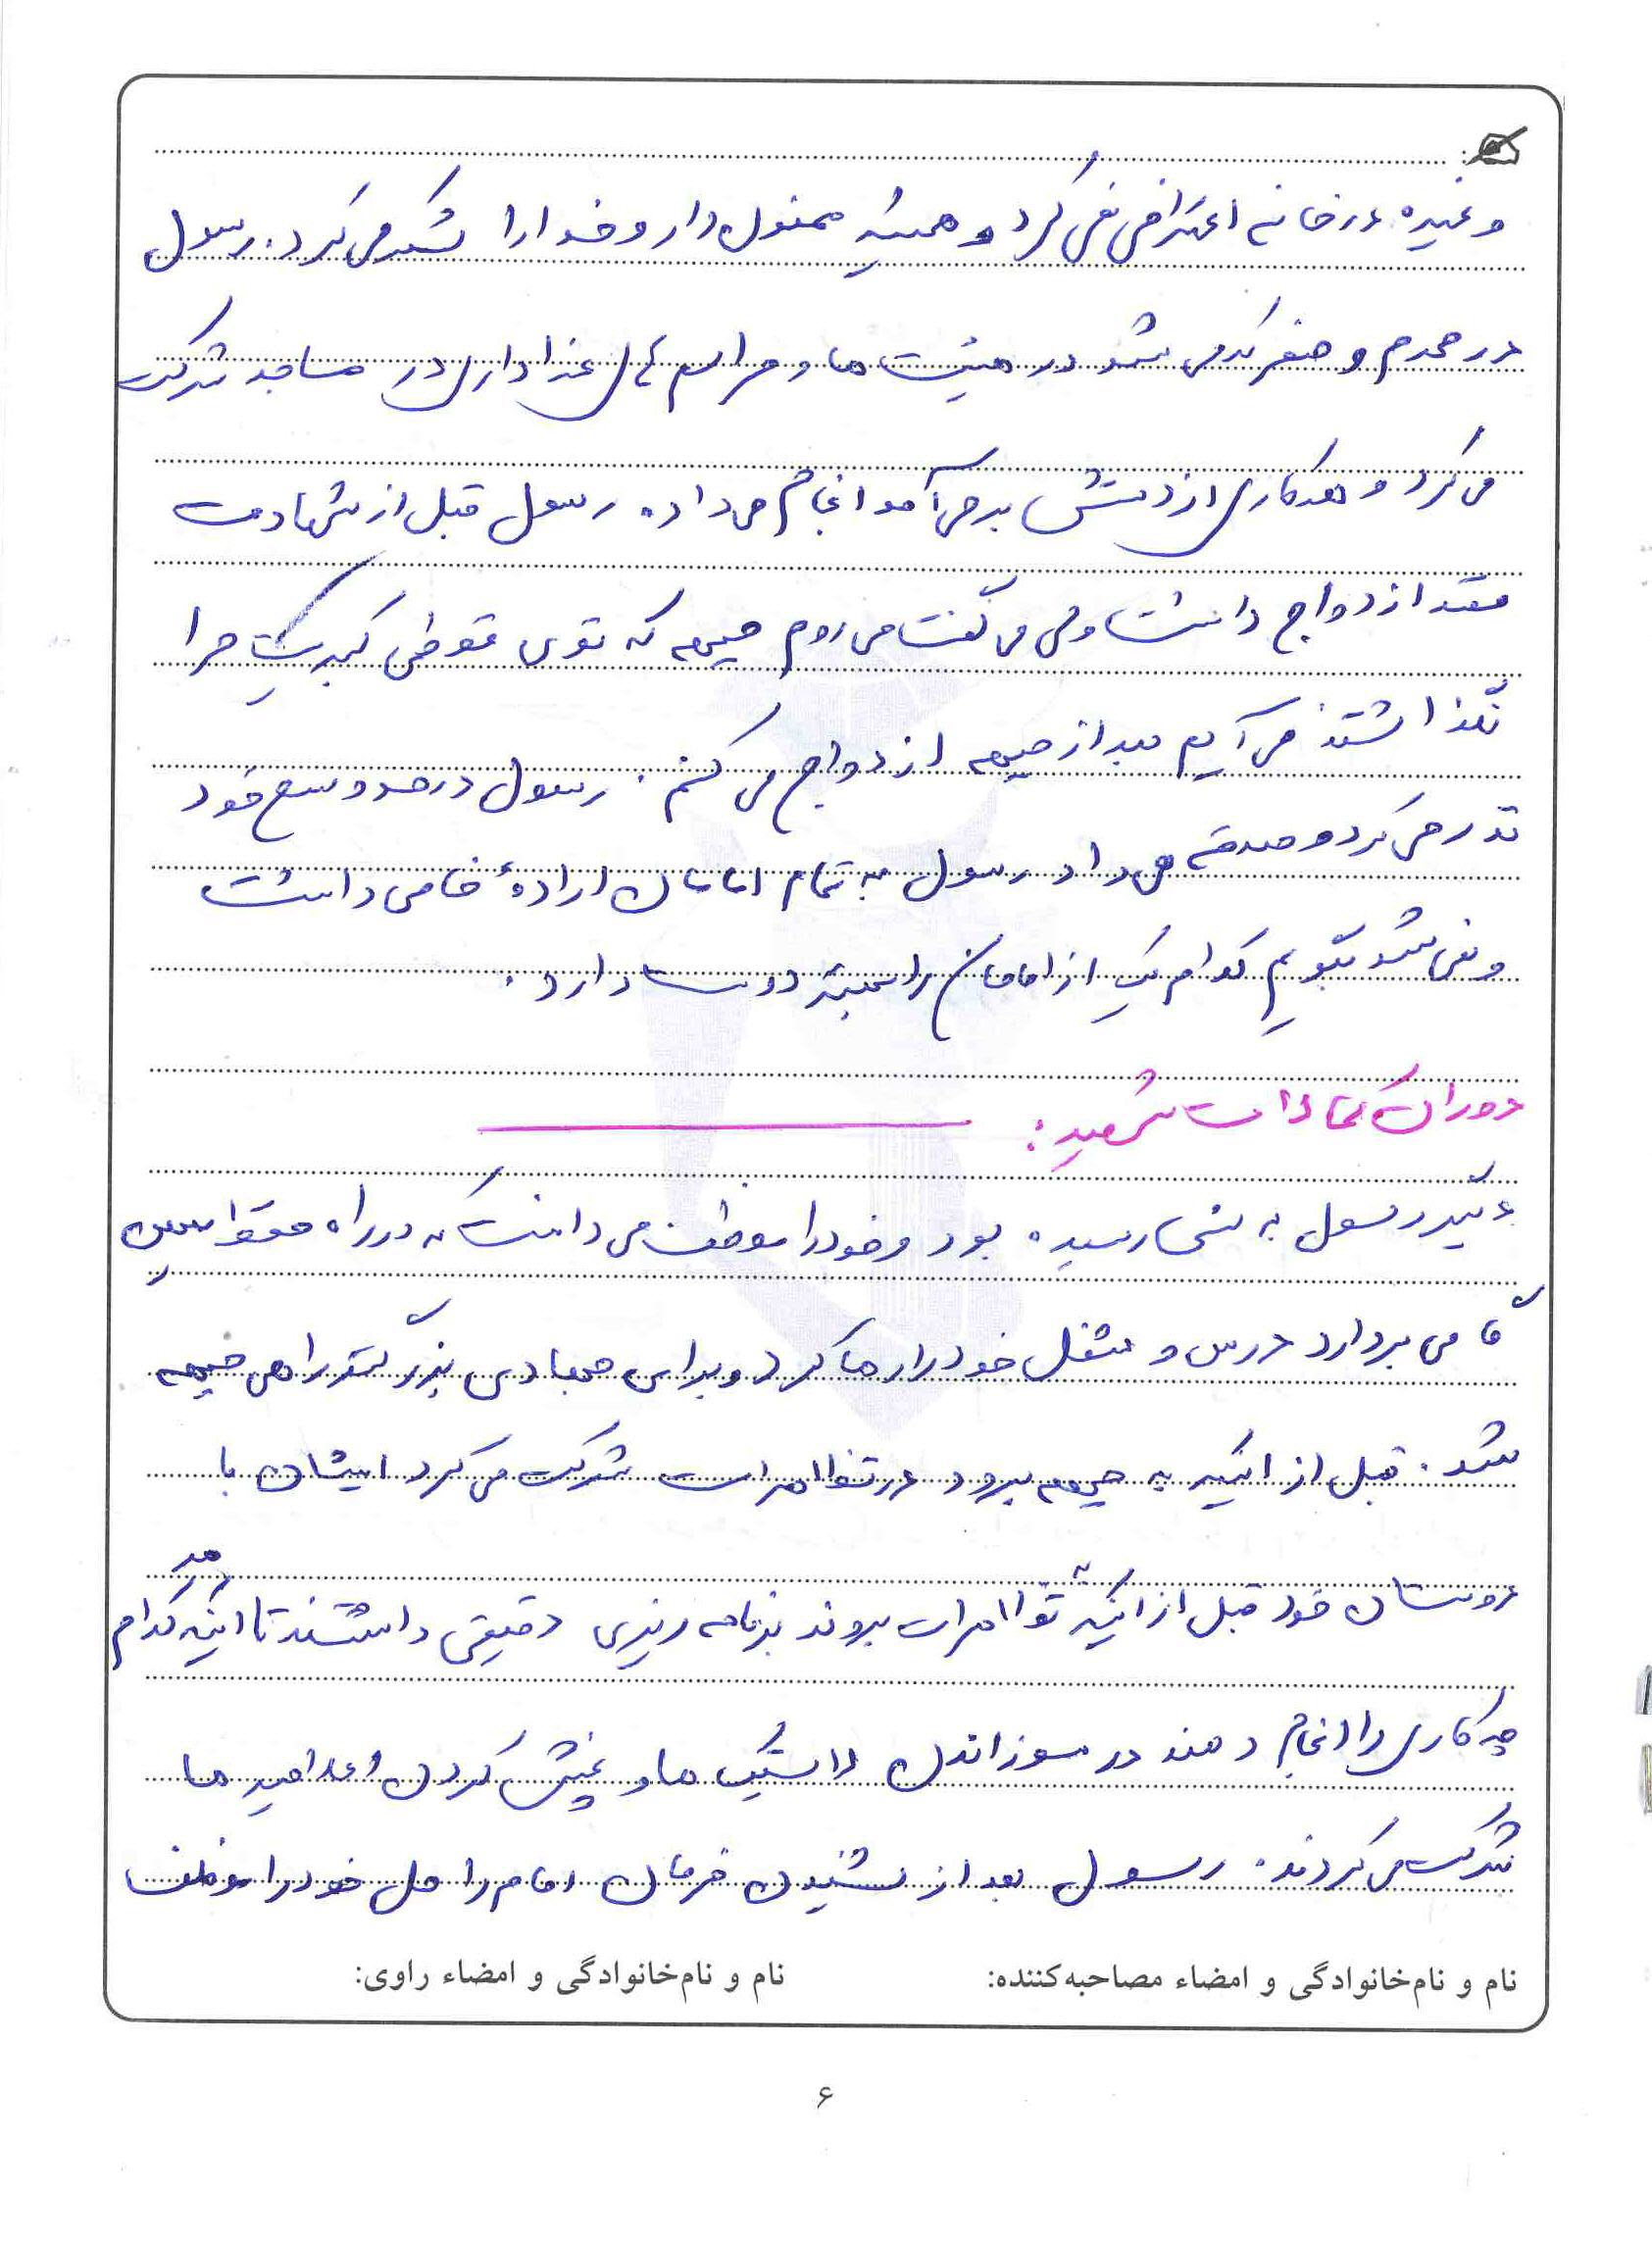 و غیره در خانه اعتراضی نمی کرد و همیشه ممنون دار و خدا را شکر می کرد. رسول
در محرم و صفر که می شد در هیئت ها و مراسم های عزاداری در مساجد شرکت
می کرد و هر کاری از دستش بر می آمد انجام می داد. رسول قبل از شهادت
قصد ازدواج داشت ولی می گفت می روم جبهه که توی قوطی کبریت مرا
نگذاشتند می آیم بعد از جبهه ازدواج می کنم. رسول در حد وسع خود
نذر می کرد و صدقه می داد رسول به تمام امامان ارادهٔ خاصی داشت
و نمی شد بگویم کدام یک از امامان را بیشتر دوست دارد.
دوران شهادت شهید:
دیگر رسول به سنی رسیده بود و خود را موظف می دانست که در راه حق و اسلام
گامی بردارد درس و شغل خود را رها کرد و برای جهادی بزرگتر راهی جبهه
شد. قبل از اینکه به جبهه برود در تظاهرات شرکت می کرد ایشان با
دوستان خود قبل از اینکه به تظاهرات بروند برنامه ریزی دقیقی داشتند تا اینکه هر کدام
چه کاری را انجام دهند در سوزاندن لاستیک ها و پخش کردن اعلامیه ها
شرکت می کردند. رسول بعد از شنیدن فرمان امام راحل خود را موظف
نام و نام‌خانوادگی و امضاء مصاحبه‌کننده: نام و نام‌خانوادگی و امضاء راوی:
۶